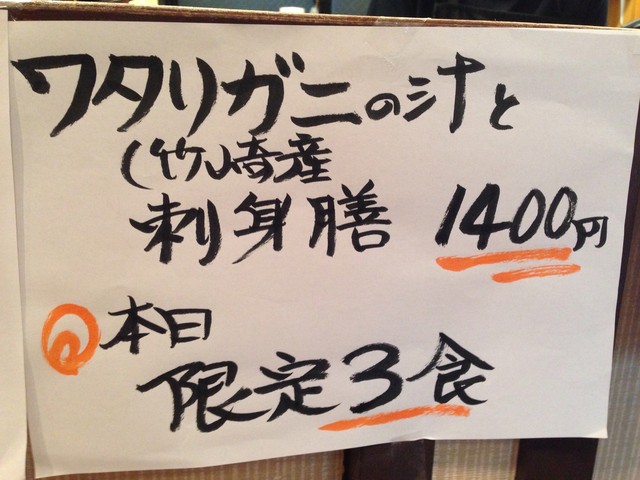 ワタリガニの汁と
(竹崎産
刺身膳 1400円
本日
限定3食